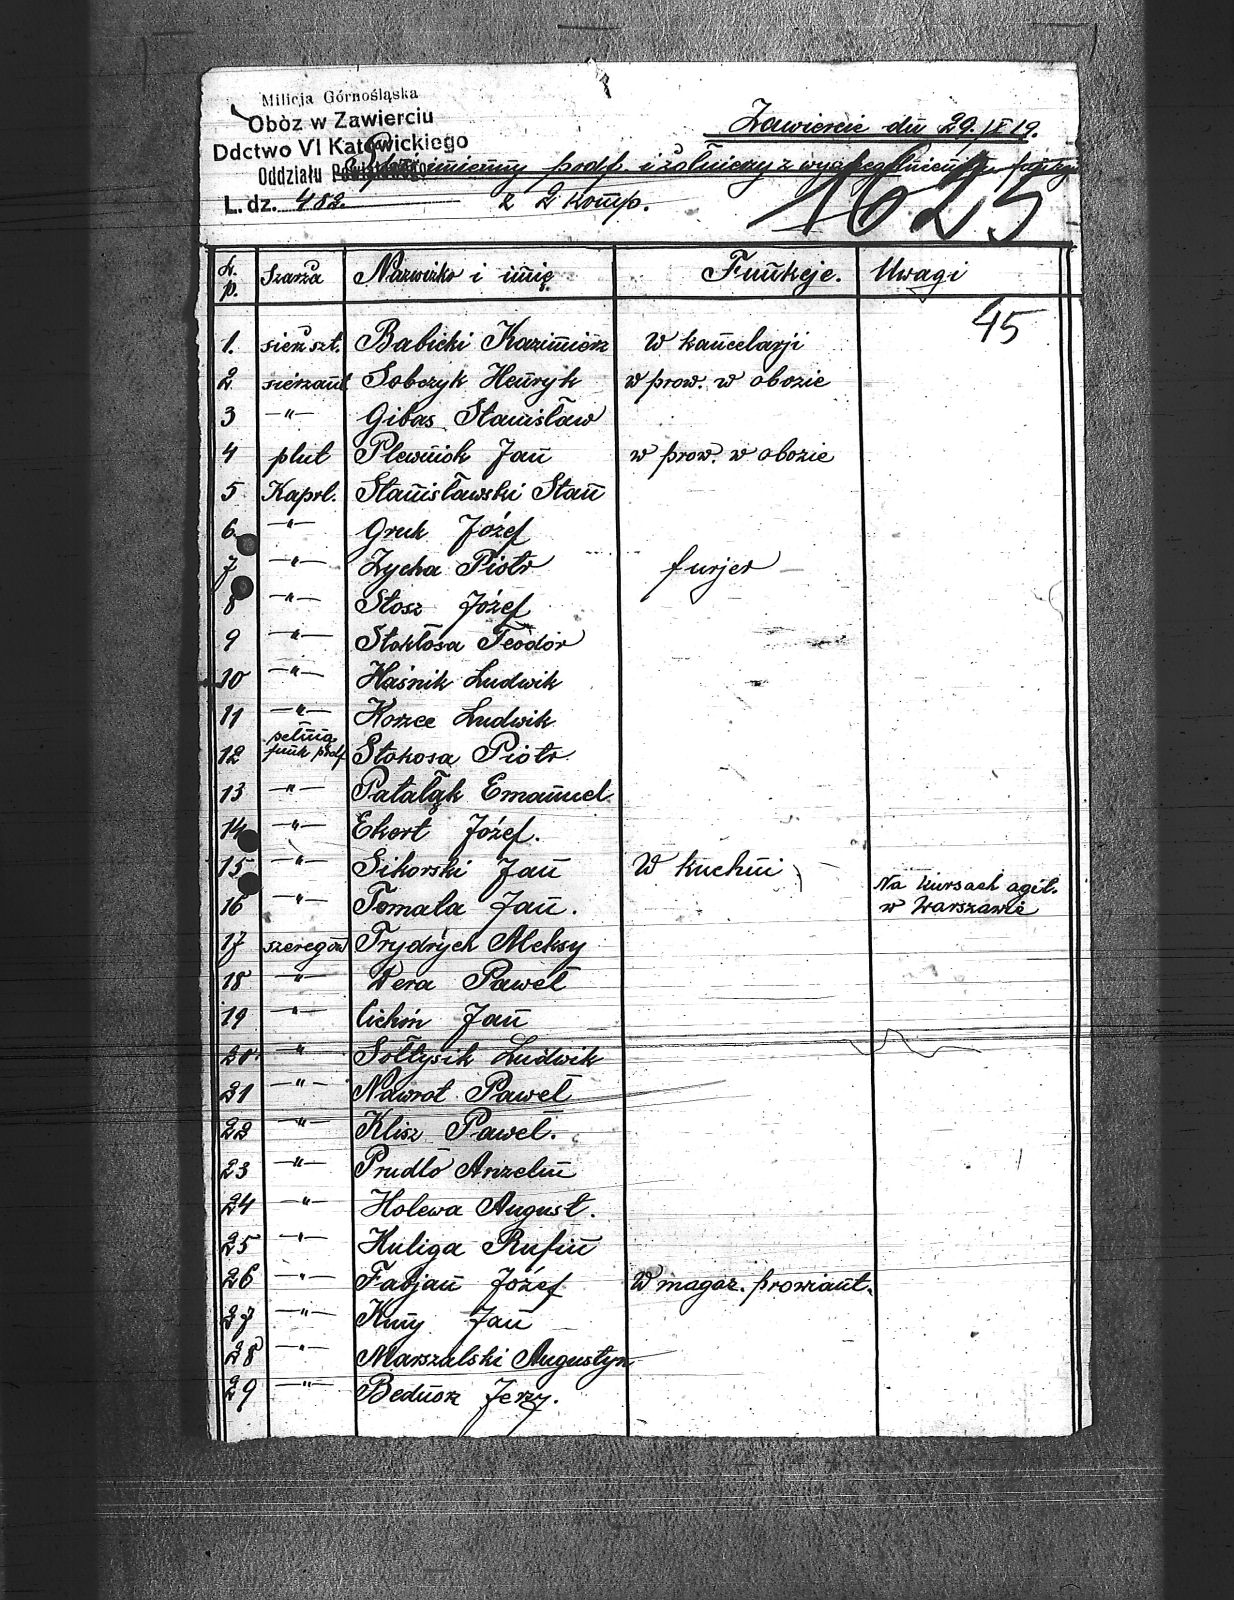 Milicja Górnośląska
Obóz w Zawierciu
Ddctwo VI Katowickiego
Oddziału
L. dz. 482.
Zawiercie dn 29./X 19.
Spis imienny podf. i żołnierzy z wyszczególnieniem funkcji
z 2 komp.
1625
L. p. Szarża Nazwizko i imię Funkcje. Uwagi
45
1. sierż szt. Babicki Kazimierz W kancelarji
2 sierżant Sobczyk Henryk w prow. w obozie
3 —"— Gibas Stanisław
4 plut Plewniok Jan w prow. w obozie
5 Kaprl. Stanisławski Stan
6 —"— Gruk Józef
7 —"— Zycha Piotr furjer
8 —"— Stosz Józef
9 —"— Stokłosa Teodor
10 —"— Haśnik Ludwik
11 —"— Korzec Ludwik
12 pełnią funk podf Stokosa Piotr
13 —"— Pataląk Emanuel
14 —"— Ekert Józef.
15 —"— Sikorski Jan W kuchni
16 —"— Tomala Jan. Na kursach agit.
w Warszawie
17 szeregow Frydrych Aleksy
18 —"— Dera Paweł
19 —"— Cichoń Jan
20 —"— Sołtysik Ludwik
21 —"— Nawrot Paweł
22 —"— Klisz Paweł.
23 —"— Prudło Anzelm
24 —"— Holewa August.
25 —"— Kuliga Rufin
26 —"— Fabjan Józef W magaz. prowiant.
27 —"— Kuny Jan
28 —"— Marszalski Augustyn
29 —"— Bednorz Jerzy.